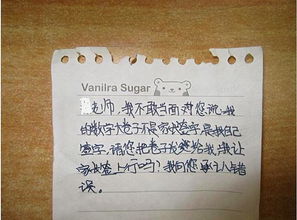 Vanilra Sugar
老师，我不敢当面对您说，我
的数学大卷子不是家长签字，是我自己
签字，请您把卷子发还给我，我让
家长签上行吗？我向您承认错
误。